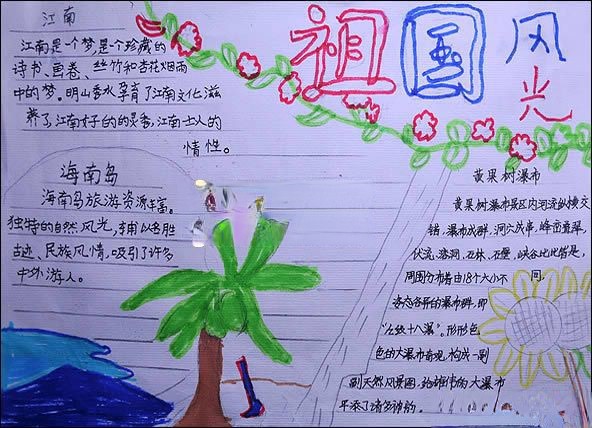 祖国风光
江南
江南是一个梦,是一个珍藏的
诗书、画卷、丝竹和杏花烟雨
中的梦。明山秀水孕育了江南文化滋
养了江南女子的灵秀,江南士人的
情性。
海南岛
海南岛旅游资源丰富。
独特的自然风光,辅以名胜
古迹、民族风情,吸引了许多
中外游人。
黄果树瀑布
黄果树瀑布景区内河流纵横交
错,瀑布成群,洞穴成串,峰峦叠翠,
伏流、溶洞、石林、石壁、峡谷比比皆是,
周围分布着由18个大小不
同、
姿态各异的瀑布群,即
“九级十八瀑”。形形色
色的大瀑布奇观,构成一副
副天然风景图,给雄伟的大瀑布
平添了诸多神韵。